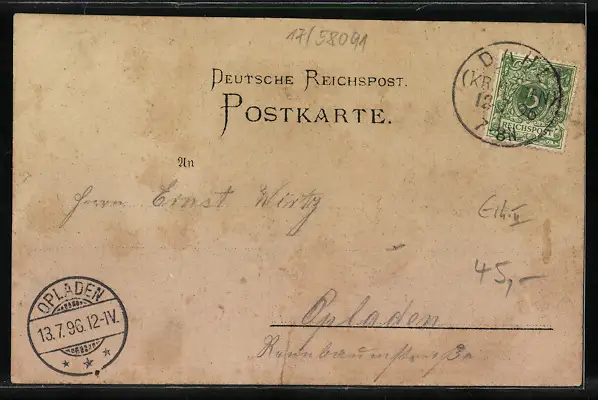 17/58091
DEUTSCHE REICHSPOST.
POSTKARTE.
(KR
12
7-8N
5
REICHSPOST
An
Herrn Ernst Wirtz
45,-
OPLADEN
13.7.96.12-1V.
Opladen
Rennbaumstraße